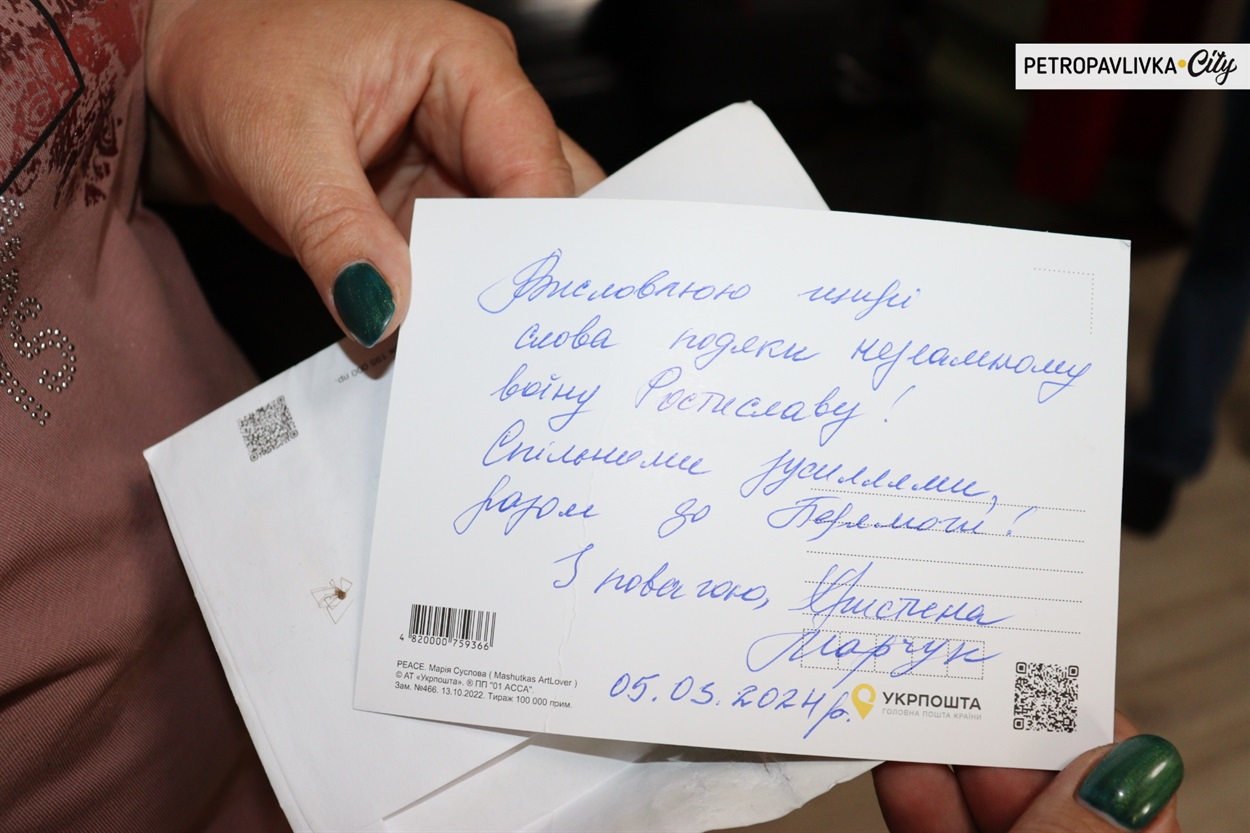 PETROPAVLIVKA•City
Висловлюю щирі
слова подяки незламному
воїну Ростиславу!
Спільними зусиллями,
разом до Перемоги!
З повагою, Христина
Марчук
05.03.2024р.
4 820000 759366
PEACE. Марія Суслова ( Mashutkas ArtLover )
© АТ «Укрпошта». ® ПП "01 АССА".
Зам. №466. 13.10.2022. Тираж 100 000 прим.
УКРПОШТА
ГОЛОВНА ПОШТА КРАЇНИ